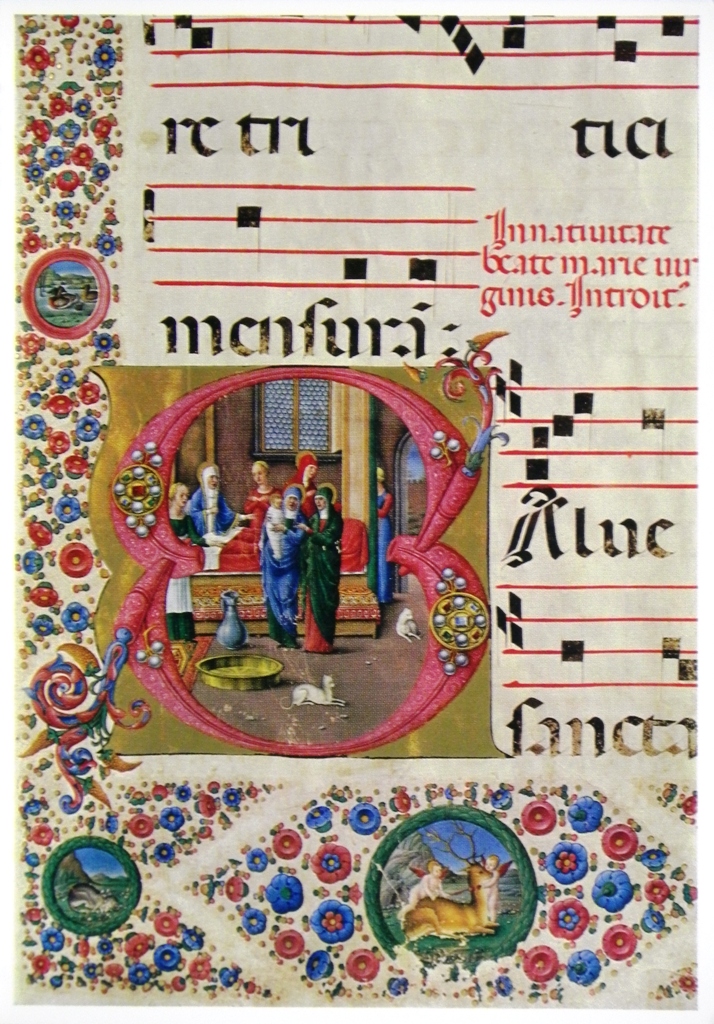 re tri tici
In natiuitate
beate marie uir
ginis. Introit.
mensura:
Salue
sancta